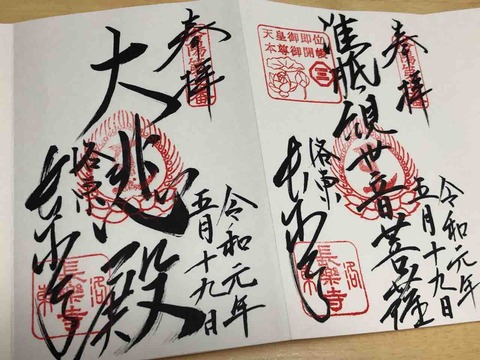 奉拝
令和元年
五月十九日
准胝観世音菩薩
天皇御即位
本尊御開帳
三
洛東
長楽寺
洛東
長樂寺
奉拝
令和元年
五月十九日
大悲殿
洛東
長楽寺
洛東
長樂寺